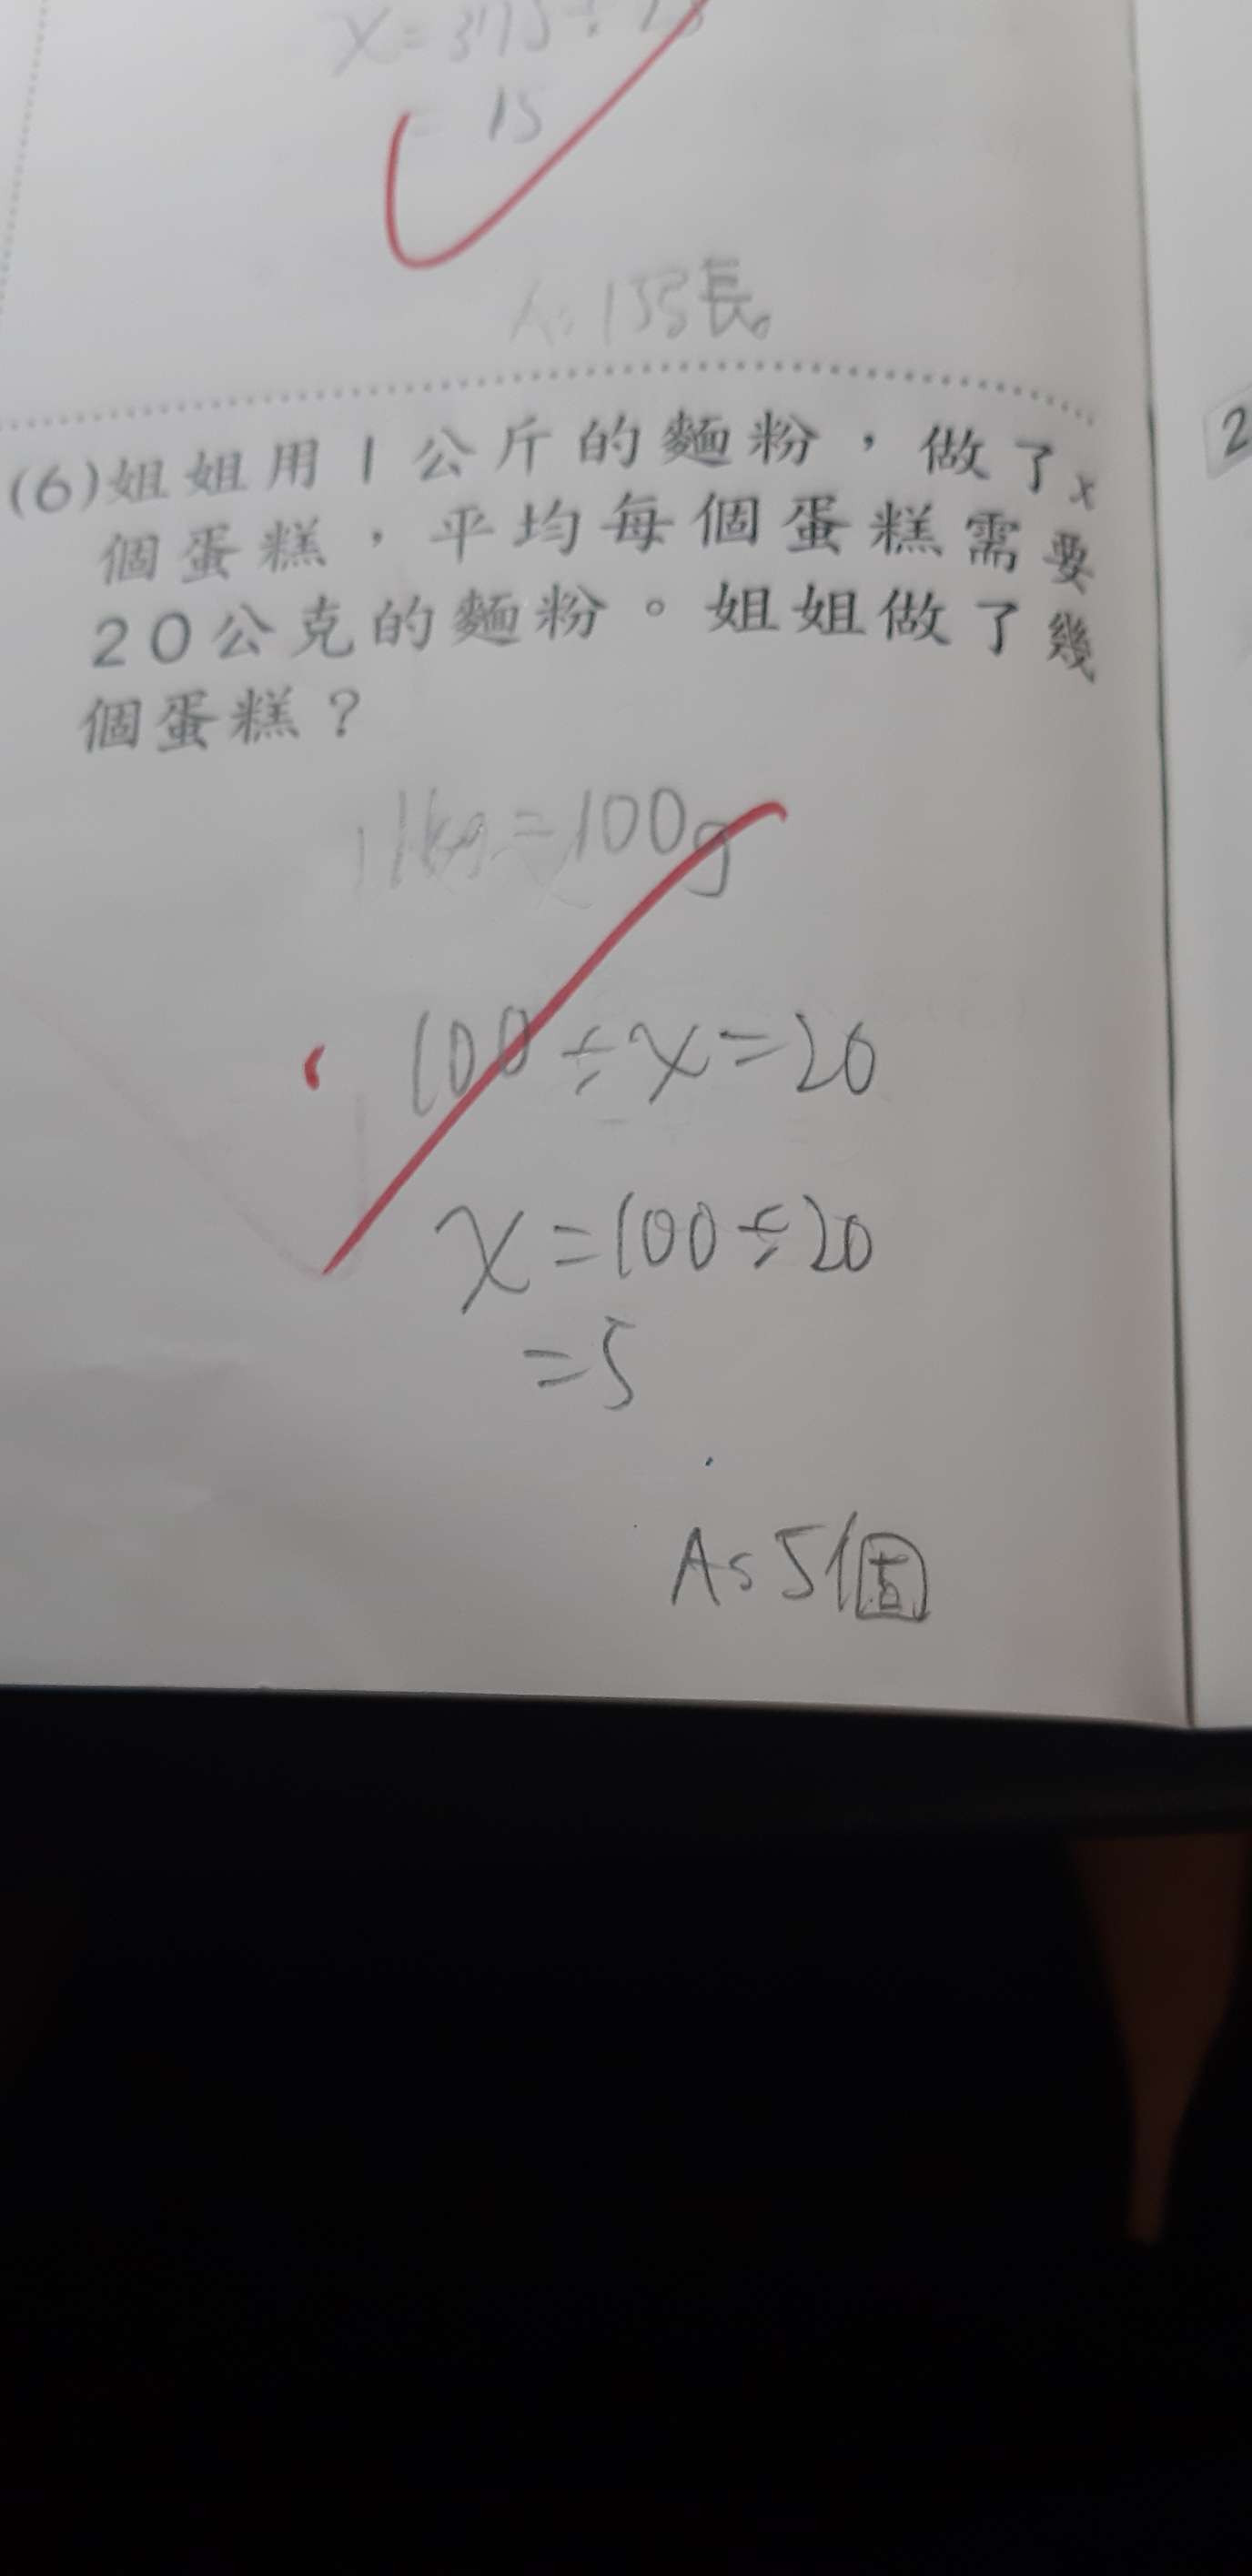 x=375÷25
= 15
(6)姐姐用1公斤的麵粉，做了x
個蛋糕，平均每個蛋糕需要
20公克的麵粉。姐姐做了幾
個蛋糕？
1kg=100g
100÷x=20
x=100÷20
=5
A:5個
2